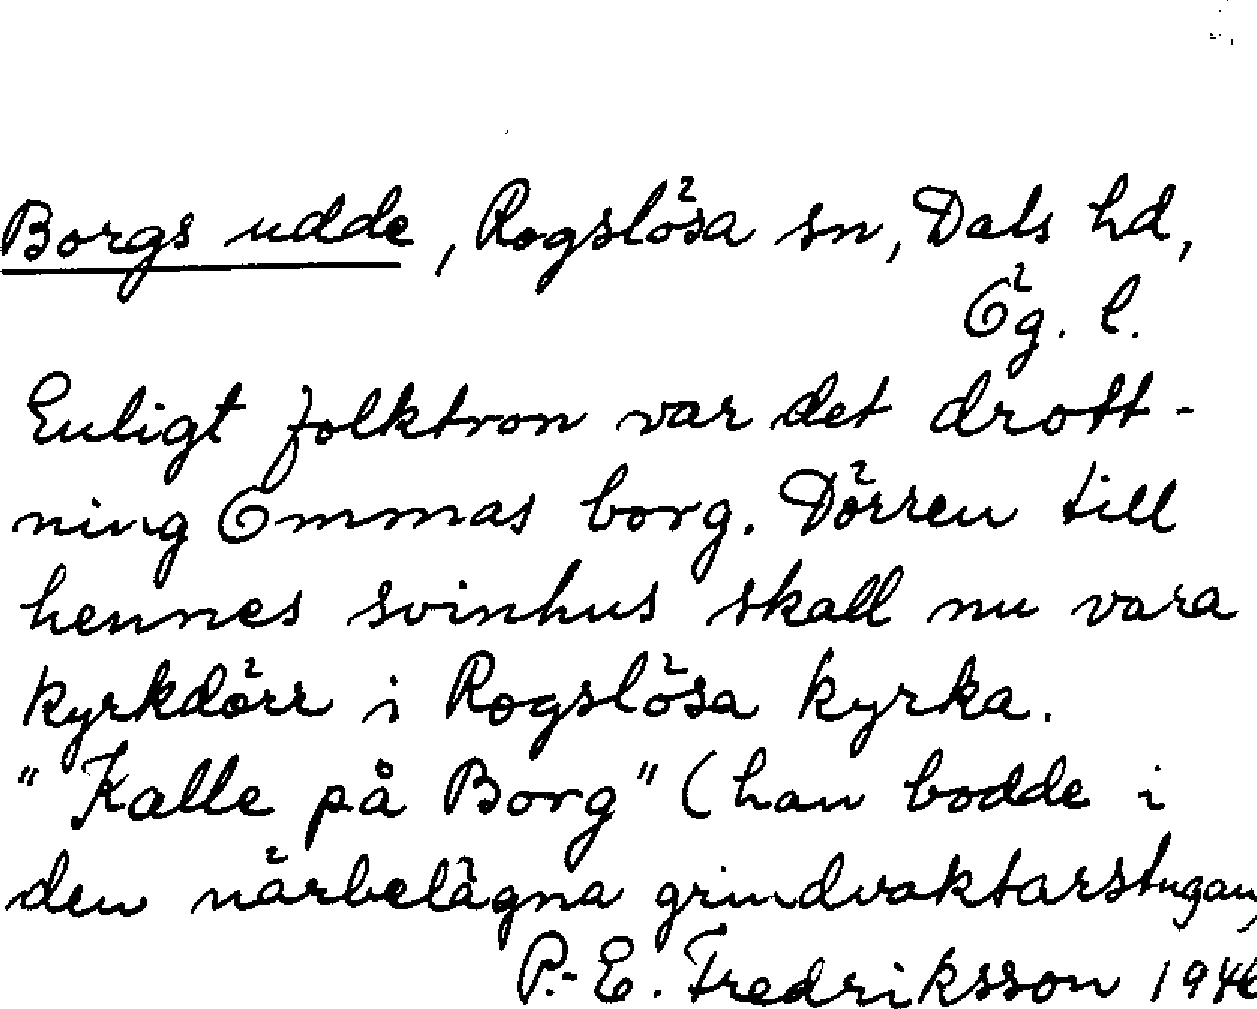 Borgs udde, Rogslösa sn, Dals hd,
Ög. l.
Enligt folktron var det drott-
ning Ommas borg. Dörren till
hennes svinhus skall nu vara
kyrkdörr i Rogslösa kyrka.
"Kalle på Borg" (han bodde i
den närbelägna grindvaktarstugan)
P.-E. Fredriksson 1946